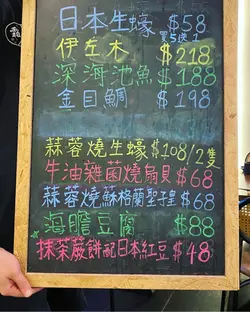 日本生蠔 $58
買5送1
伊左木 $218
深海池魚 $188
金目鯛 $198
蒜蓉燒生蠔 $108/2隻
牛油雜菌燒扇貝 $68
蒜蓉燒蘇格蘭聖子皇 $68
海膽豆腐 $88
抹茶蕨餅配日本紅豆 $48